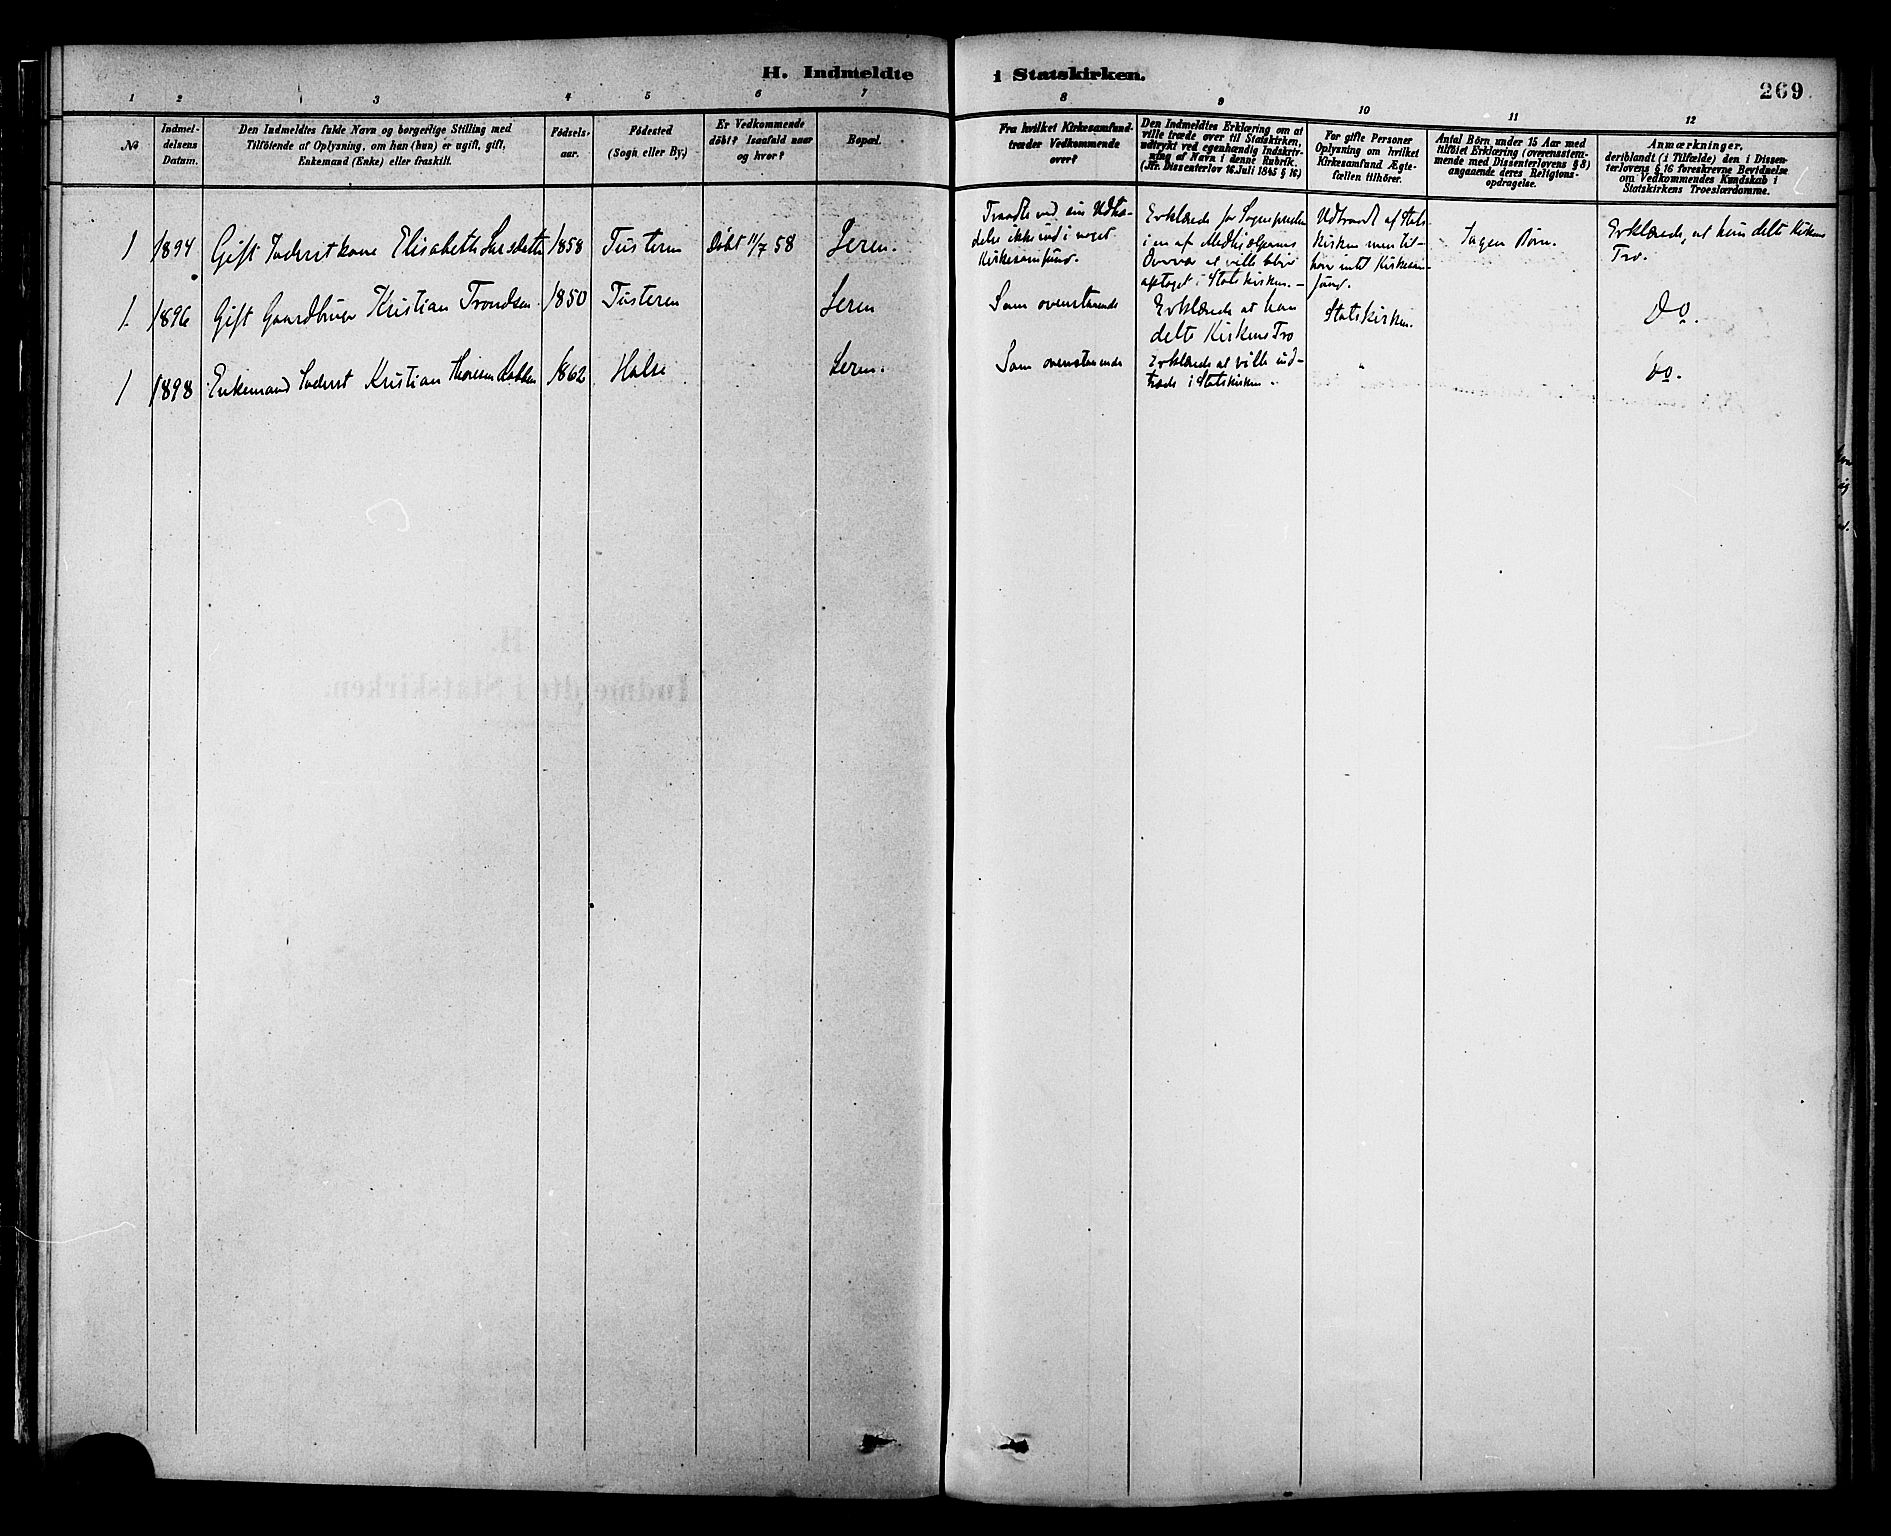 H. Indmeldte i Statskirken.
269
1 2 3 4 5 6 7 8 9 10 11 12
No
Indmel-
delsens
Datum.
Den Indmeldtes fulde Navn og borgerlige Stilling med
Tilföiende af Oplysning, om han (hun) er ugift, gift,
Enkemand (Enke) eller fraskilt.
Födsels-
aar.
Födested
(Sogn eller By.)
Er Vedkommende
döbt? Isaafald naar
og hvor?
Bopæl.
Fra hvilket Kirkesamfund-
træder Vedkommende
over?
Den Indmeldtes Erklæring om at
ville træde over til Statskirken,
udtrykt ved egenhændig Indskriv-
ning af Navn i denne Rubrik.
(Jfr. Dissenterlov 16. Juli 1845 § 16)
For gifte Personer
Oplysning om hvilket
Kirkesamfund Ægte-
fællen tilhörer.
Antal Börn under 15 Aar med
tilföiet Erklæring (overensstem-
mende med Dissenterlovens § 8)
angaaende deres Religions-
opdragelse.
Anmærkninger,
deriblandt (i Tilfælde) den i Dissen-
terlovens § 16 foreskrevne Bevidnelse
om Vedkommendes Kundskab i
Statskirkens Troeslærdomme.
1 1894 Gift Inderstkone Elisabeth Larsdatter 1858 Tusteren Döbt 11/7 58 Leren.
Traadte ved sin Udtræ-
delse ikke ind i noget
Kirkesamfund.
Erklærede for Sognepresten
i en af Medhjælpernes
Overvær at ville blive
optaget i Statskirken. -
Udtraadt af Stats
kirken men til-
hører intet Kirkesam-
fund.
Ingen Børn.
Erklærede, at hun delte Kirkens
Tro.
1. 1896 Gift Gaardbruger Kristian Trondsen. 1850 Tusteren Leren
Som ovenstaaende
Erklærede at han
delte Kirkens Tro
Statskirken.
Do.
1 1898 Enkemand Inderst Kristian Thoresen 1862 Halse Leren.
Som ovenstaaende
Erklærede at ville ind-
træde i Statskirken.
"
do.